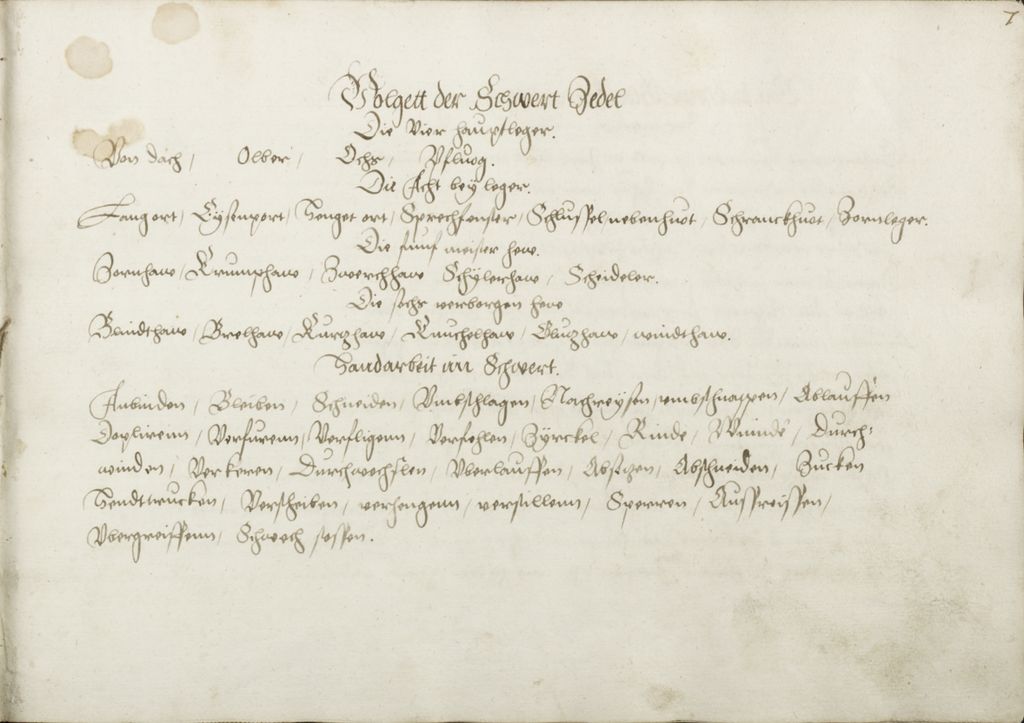 7
Volgett der Schwert Zedel
Die Vier hauptleger.
Von dach, Olber, Ochs, Pfluog.
Die Acht bey leger.
Langort, Eysenport, Henget ort, Sprechfenster, Schlussel, nebenhuot, Schranckhuot, Zornleger.
Die funf meister hew.
Zornhaw, Krumphaw, Zwerchhaw Schylerhaw, Scheideler.
Die sechs verborgen hew
Blindthaw, Brelhaw, Kurtzhaw, Knuchelhaw, Glutzhaw, windthaw.
Handarbeit im Schwert.
Anbinden, Bleiben, Schneiden, Umbschlagen, Nachreysen, umbschnappen, Ablauffen
Doplirenn, Verfurenn, Verfligenn, Verfehlen, Zyrckel, Rinde, Winde, Durch-
winden, Verkeren, Durchwechslen, Uberlauffen, Absetzen, Abschneiden, Zucken
Hendttrucken, Verschieben, verhengenn, verstillenn, Sperren, Aussreissen,
Ubergreiffenn, Schwech stossen.